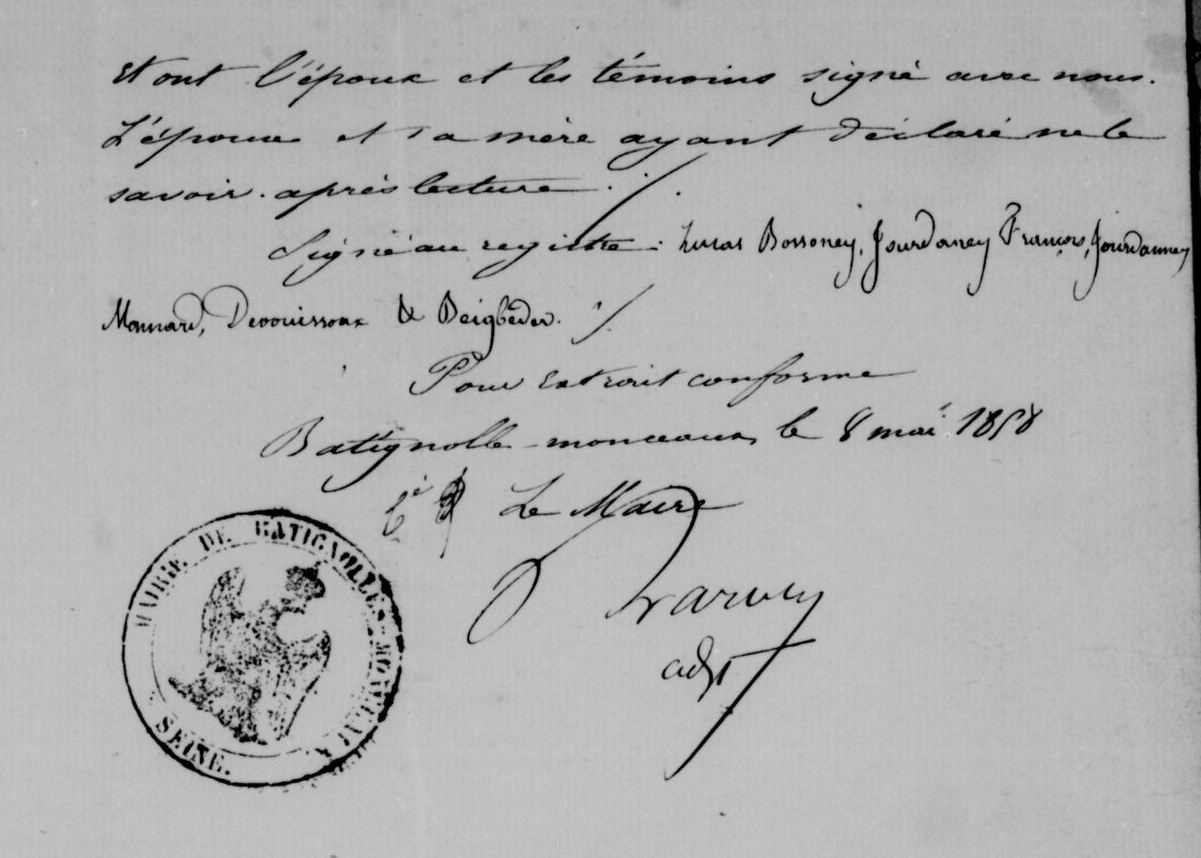 Et ont l'époux et les témoins signé avec nous.
L'épouse et sa mère ayant déclaré ne le
savoir. après lecture ./.
Signé au registre : Lucas Bossoney, Jourdaney François, Jourdanney
Monnard, Devouissoux & Beigbeder. ./.
Pour extrait conforme
Batignolle-monceaux, le 8 mai 1858
Le Maire
adjt
MAIRIE DE BATIGNOLLES-MONCEAUX
SEINE.